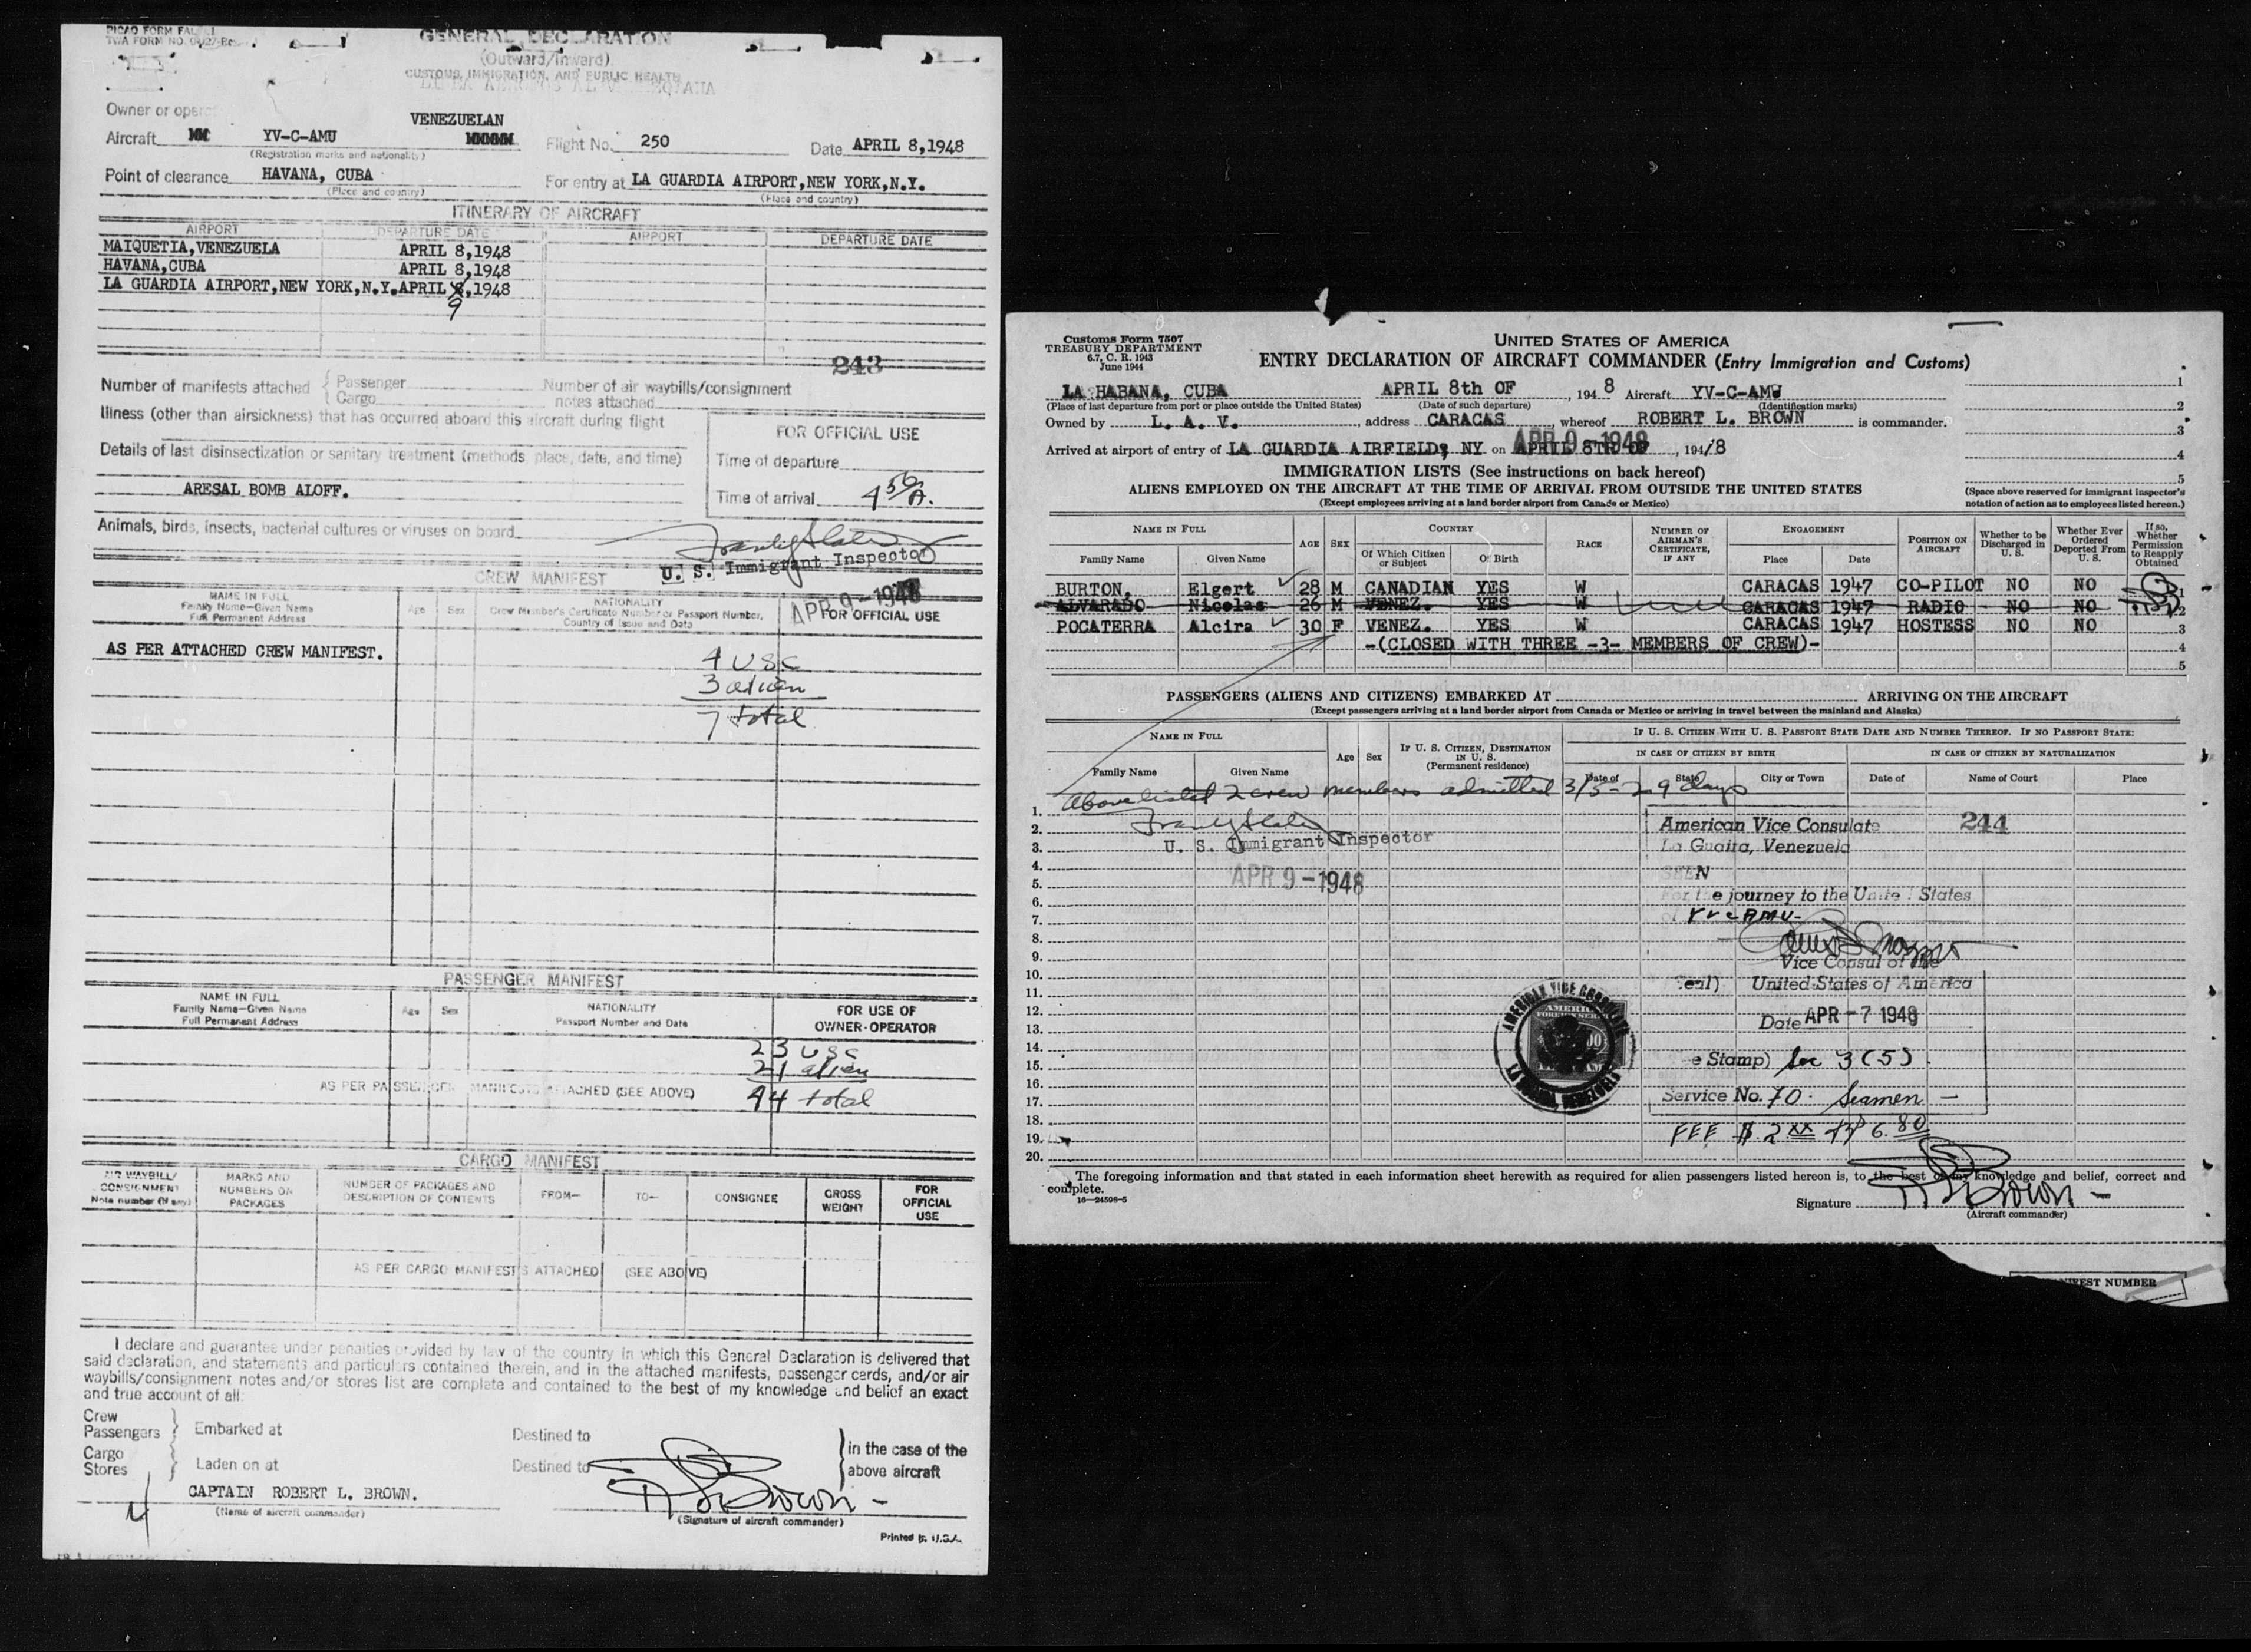 PICAO FORM FAL
TWA FORM NO.
GENERAL DECLARATION
(Outward/Inward)
CUSTOMS, IMMIGRATION, AND PUBLIC HEALTH
Owner or oper
VENEZUELAN
Aircraft YV-C-AMU Flight No. 250 Date APRIL 8,1948
(Registration marks and nationality)
Point of clearance HAVANA, CUBA For entry at LA GUARDIA AIRPORT,NEW YORK,N.Y.
(Place and country) (Place and country)
ITINERARY OF AIRCRAFT
AIRPORT DEPARTURE DATE AIRPORT DEPARTURE DATE
MAIQUETIA,VENEZUELA APRIL 8,1948
HAVANA,CUBA APRIL 8,1948
LA GUARDIA AIRPORT,NEW YORK,N.Y.APRIL 8,1948
9
243
Number of manifests attached { Passenger Number of air waybills/consignment
Cargo notes attached
Illness (other than airsickness) that has occurred aboard this aircraft during flight
FOR OFFICIAL USE
Details of last disinsectization or sanitary treatment (methods, place, date, and time)
Time of departure
ARESAL BOMB ALOFF.
Time of arrival 4 50 A.
Animals, birds, insects, bacterial cultures or viruses on board
U. S. Immigrant Inspector
CREW MANIFEST
APR 9-1948
NAME IN FULL
Family Name—Given Name
Full Permanent Address
Age Sex
NATIONALITY
Crew Member's Certificate Number or Passport Number,
Country of Issue and Date
FOR OFFICIAL USE
AS PER ATTACHED CREW MANIFEST.
4 USC
3 alien
7 total
PASSENGER MANIFEST
NAME IN FULL
Family Name—Given Name
Full Permanent Address
Age Sex
NATIONALITY
Passport Number and Date
FOR USE OF
OWNER-OPERATOR
23 USC
21 alien
AS PER PASSENGER MANIFESTS ATTACHED (SEE ABOVE)
44 total
CARGO MANIFEST
AIR WAYBILL/
CONSIGNMENT
Note number (if any)
MARKS AND
NUMBERS ON
PACKAGES
NUMBER OF PACKAGES AND
DESCRIPTION OF CONTENTS
FROM— TO— CONSIGNEE
GROSS
WEIGHT
FOR
OFFICIAL
USE
AS PER CARGO MANIFESTS ATTACHED (SEE ABOVE)
I declare and guarantee under penalties provided by law of the country in which this General Declaration is delivered that
said declaration, and statements and particulars contained therein, and in the attached manifests, passenger cards, and/or air
waybills/consignment notes and/or stores list are complete and contained to the best of my knowledge and belief an exact
and true account of all:
Crew
Passengers } Embarked at Destined to
Cargo
Stores } Laden on at Destined to
in the case of the
above aircraft
CAPTAIN ROBERT L. BROWN.
(Name of aircraft commander)
R L Brown
(Signature of aircraft commander)
Printed in U.S.A.
Customs Form 7507
TREASURY DEPARTMENT
6.7, C. R. 1943
June 1944
UNITED STATES OF AMERICA
ENTRY DECLARATION OF AIRCRAFT COMMANDER (Entry Immigration and Customs)
LA HABANA, CUBA APRIL 8th OF , 1948 Aircraft YV-C-AMU
(Place of last departure from port or place outside the United States) (Date of such departure) (Identification marks)
Owned by L. A. V. , address CARACAS , whereof ROBERT L. BROWN is commander.
Arrived at airport of entry of LA GUARDIA AIRFIELD, NY on APRIL 8TH OF , 194/8
APR 9-1948
1
2
3
4
5
IMMIGRATION LISTS (See instructions on back hereof)
ALIENS EMPLOYED ON THE AIRCRAFT AT THE TIME OF ARRIVAL FROM OUTSIDE THE UNITED STATES
(Except employees arriving at a land border airport from Canada or Mexico)
(Space above reserved for immigrant inspector's
notation of action as to employees listed hereon.)
NAME IN FULL
Family Name Given Name
AGE SEX
COUNTRY
Of Which Citizen
or Subject
Of Birth
RACE
NUMBER OF
AIRMAN'S
CERTIFICATE,
IF ANY
ENGAGEMENT
Place Date
POSITION ON
AIRCRAFT
Whether to be
Discharged in
U. S.
Whether Ever
Ordered
Deported From
U. S.
If so,
Whether
Permission
to Reapply
Obtained
BURTON, Elgert 28 M CANADIAN YES W CARACAS 1947 CO-PILOT NO NO 1
ALVARADO Nicolas 26 M VENEZ. YES W CARACAS 1947 RADIO NO NO 2
POCATERRA Alcira 30 F VENEZ. YES W CARACAS 1947 HOSTESS NO NO 3
-(CLOSED WITH THREE -3- MEMBERS OF CREW)- 4
5
PASSENGERS (ALIENS AND CITIZENS) EMBARKED AT ARRIVING ON THE AIRCRAFT
(Except passengers arriving at a land border airport from Canada or Mexico or arriving in travel between the mainland and Alaska)
NAME IN FULL
Family Name Given Name
Age Sex
IF U. S. CITIZEN, DESTINATION
IN U. S.
(Permanent residence)
IF U. S. CITIZEN WITH U. S. PASSPORT STATE DATE AND NUMBER THEREOF. IF NO PASSPORT STATE:
IN CASE OF CITIZEN BY BIRTH IN CASE OF CITIZEN BY NATURALIZATION
Date of State City or Town Date of Name of Court Place
Above listed 2 crew members admitted 3/5-29 days
1.
2.
3.
4.
5.
6.
7.
8.
9.
10.
11.
12.
13.
14.
15.
16.
17.
18.
19.
20.
U. S. Immigrant Inspector
APR 9-1948
American Vice Consulate
La Guaira, Venezuela
244
SEEN
For the journey to the United States
of YVCAMU-
Vice Consul of the
(Seal) United States of America
Date APR -7 1948
e Stamp) Sec 3(5).
Service No. 70. Seamen -
FEE $.2 xx 6.80
AMERICAN VICE CONSULATE
LA GUAIRA, VENEZUELA
The foregoing information and that stated in each information sheet herewith as required for alien passengers listed hereon is, to the best of my knowledge and belief, correct and
complete.
16—24598-5
Signature R L Brown
(Aircraft commander)
MANIFEST NUMBER